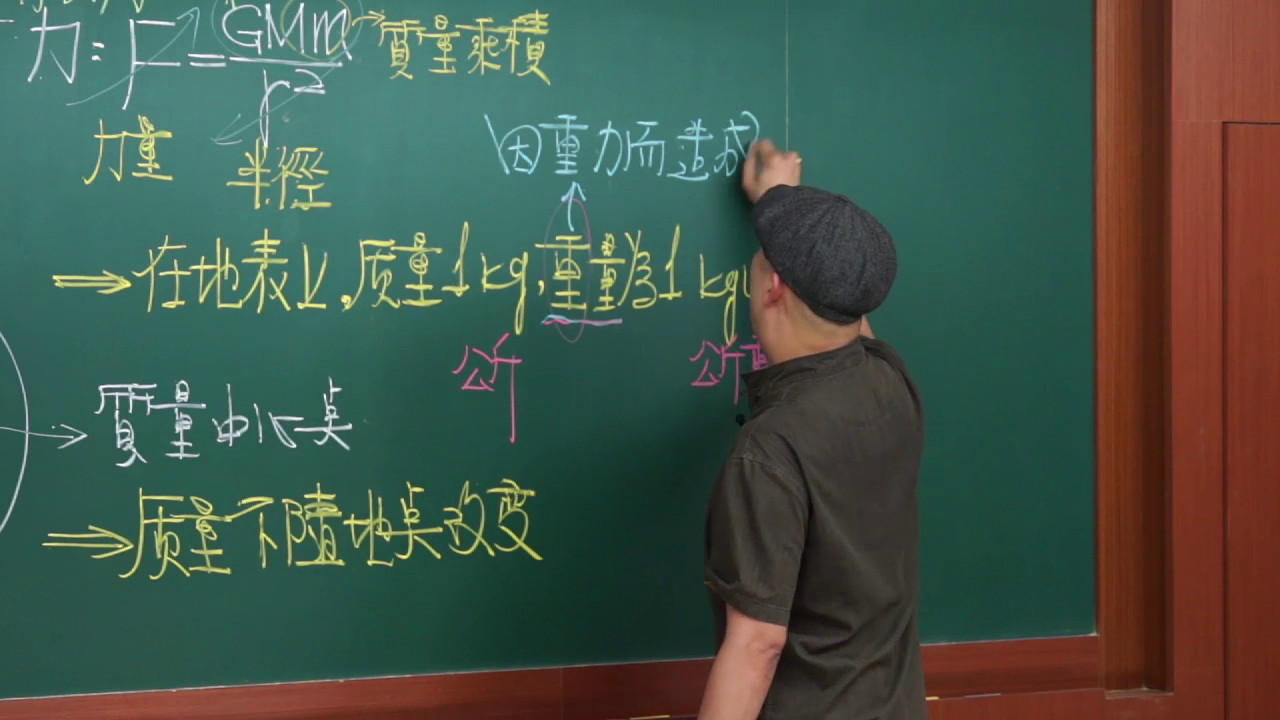 力:F=GMm/r² →質量乘積
力量
半徑
(因重力而造成)
⇒在地表上,质量1kg,重量為1kgw
公斤
公斤重
→質量中心点
⇒质量不隨地点改变